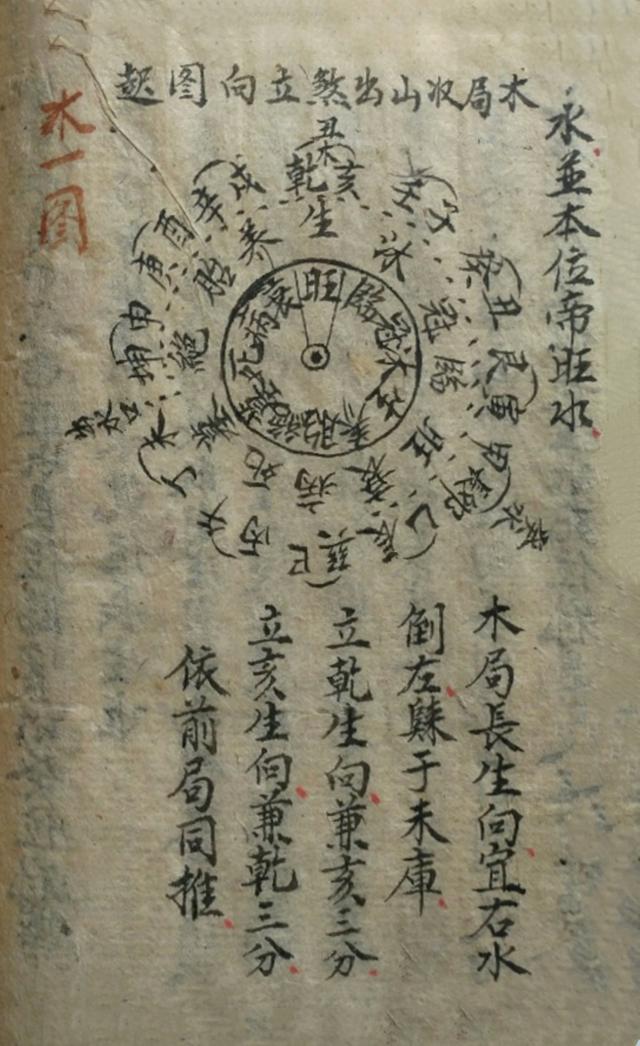 水並本位帝旺水
木局収山出煞立向图起
木一图
丑
木
乾亥
壬子
癸丑
艮寅
甲
乙辰
巽巳
丙
丁未
坤申
庚酉
辛戌
生
沐
冠
臨
旺
衰
病
死
墓
絕
胎
养
旺
臨
冠
沐
生
养
胎
絕
墓
死
病
衰
木局長生向宜右水
倒左歸于未庫
立乾生向兼亥三分
立亥生向兼乾三分
依前局同推